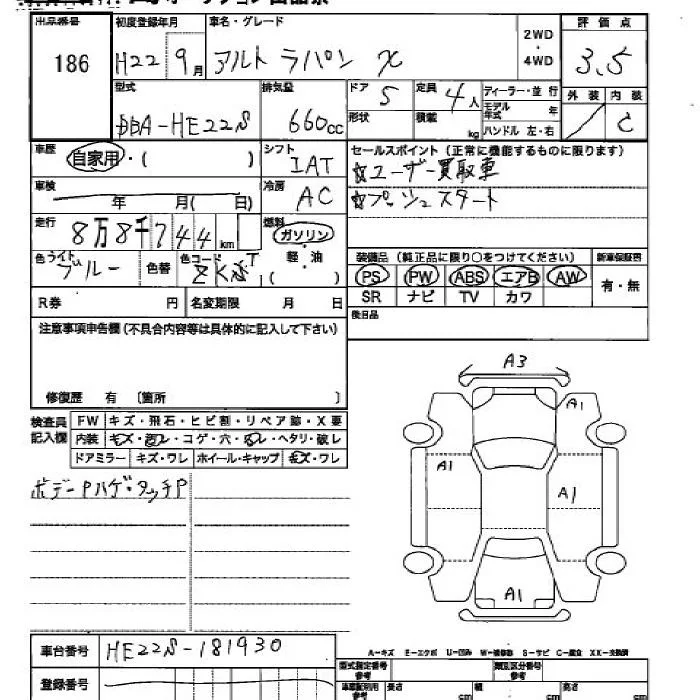 出品番号 初度登録年月 車名・グレード 2WD・4WD 評価点
186 H22 9月 アルト ラパン X 3.5
型式 排気量 ドア 5 定員 4人 ディーラー・並行 外装 内装
DBA-HE22S 660cc 形状 積載 kg モデル年式 年 C
ハンドル 左・右
車歴 自家用・( ) シフト IAT セールスポイント(正常に機能するものに限ります)
☆ユーザー買取車
車検 年 月( 日) 冷房 AC ☆プッシュスタート
走行 8万8千744km 燃料 ガソリン・軽・油 ( )
色 ライトブルー 色替 色コード ZKST 装備品(純正品に限り○をつけてください) 新車保証書
PS PW ABS エアB AW 有・無
SR ナビ TV カワ
R券 円 名変期限 月 日 後日品
注意事項申告欄(不具合内容等は具体的に記入して下さい)
修復歴 有 〔箇所 〕
検査員記入欄 FW キズ・飛石・ヒビ割・リペア跡・X要
内装 キズ・汚レ・コゲ・穴・スレ・ヘタリ・破レ
ドアミラー キズ・ワレ ホイール・キャップ キズ・ワレ
ボデーPハゲ・タッチP
A3
A1
A1
A1
A1
A-キズ E-エクボ U-凹み W-補修跡 S-サビ C-腐食 XX-交換済
車台番号 HE22S-181930
型式指定番号 参考 類別区分番号 参考
登録番号 長さ cm 幅 cm 高さ cm